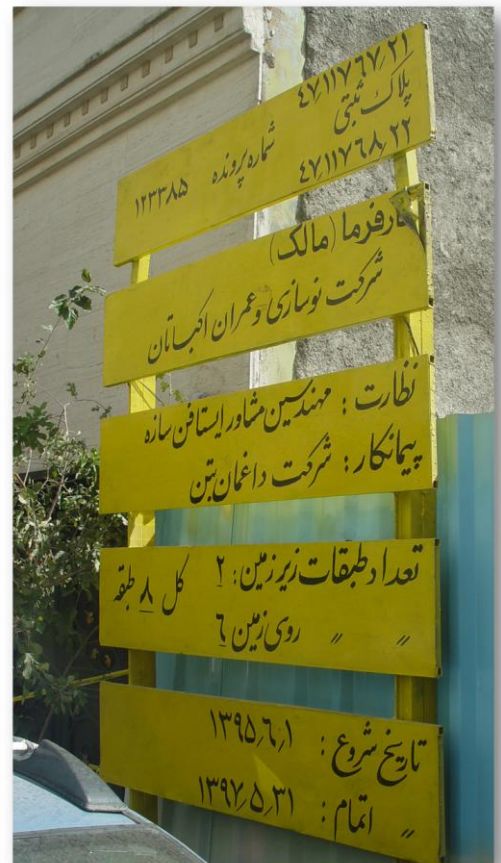 ۴۷۱۱۷۶۷٫۲۱
پلاک ثبتی شماره پرونده ۱۲۳۳۸۵
۴۷۱۱۷۶۸٫۲۲
کارفرما (مالک)
شرکت نوسازی و عمران اکباتان
نظارت : مهندسین مشاور ایستافن سازه
پیمانکار : شرکت داغمان بتن
تعداد طبقات زیر زمین : ۲ کل ۸ طبقه
〃 〃 روی زمین ۶
تاریخ شروع : ۱۳۹۵٫۶٫۱
〃 اتمام : ۱۳۹۷٫۵٫۳۱